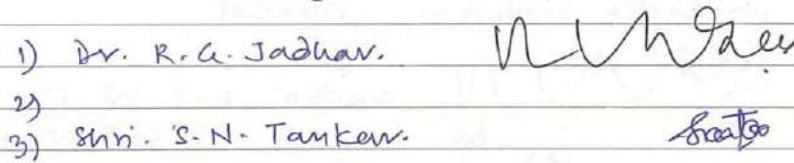 1) Dr. R. G. Jadhav.
2)
3) Shri. S. N. Tankar.